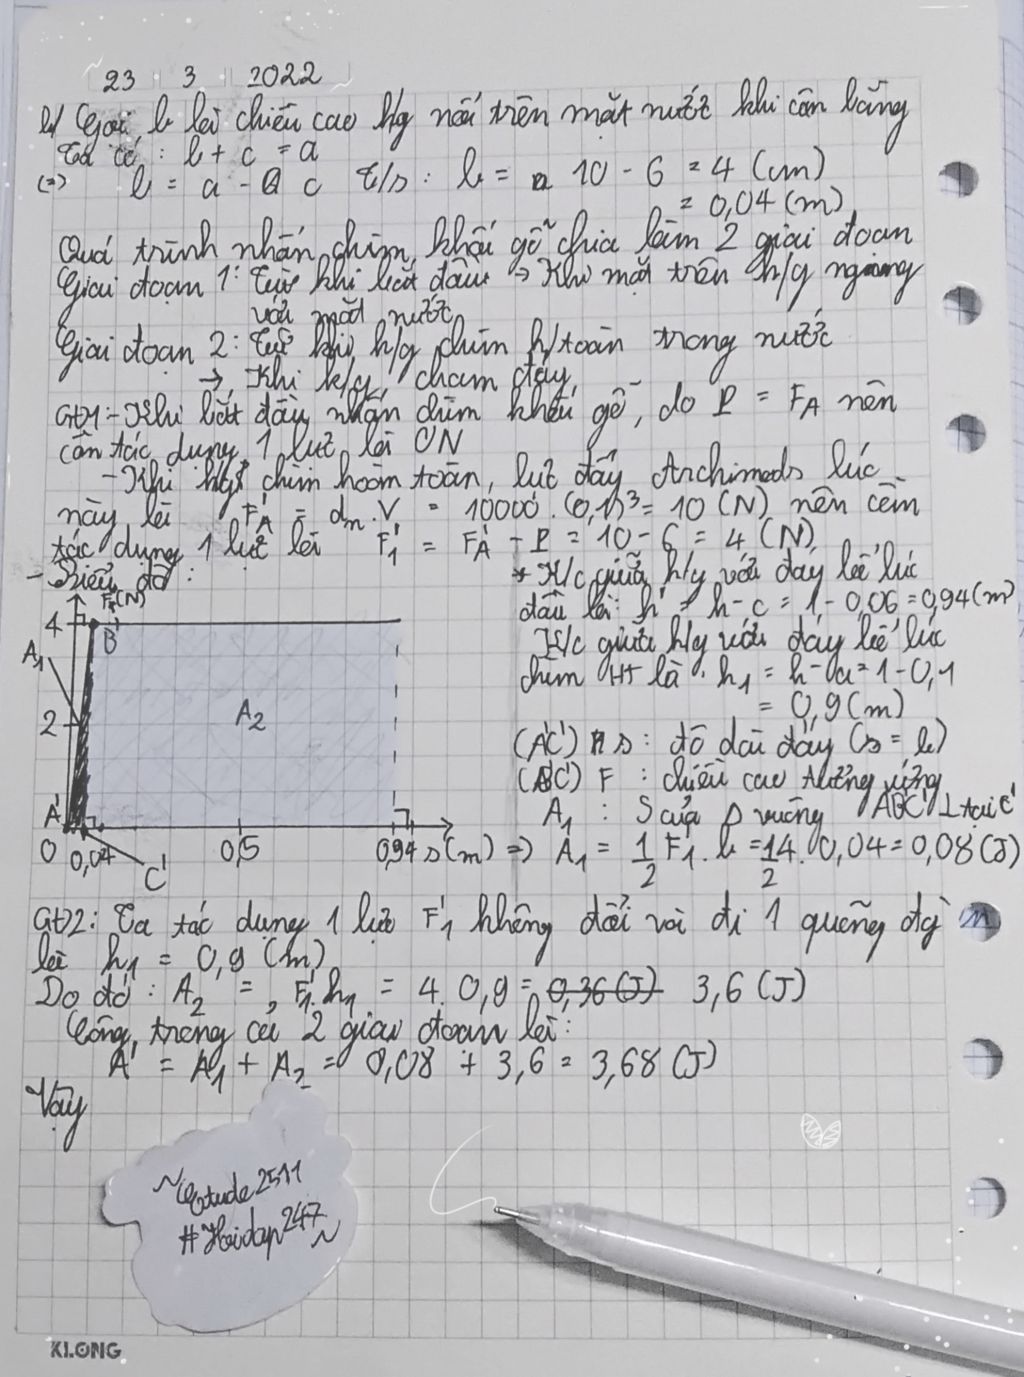 23 3 2022
b/ Gọi b là chiều cao h/g nổi trên mặt nước khi cân bằng
Ta có: b + c = a
(=) b = a - c T/s: b = 10 - 6 = 4 (cm)
= 0,04 (m)
Quá trình nhấn chìm khối gỗ chia làm 2 giai đoạn
Giai đoạn 1: Từ khi bắt đầu → Khi mặt trên h/g ngang
với mặt nước
Giai đoạn 2: Từ khi h/g chìm h/toàn trong nước
→ Khi k/g chạm đáy
GĐ1: - Khi bắt đầu nhấn chìm khối gỗ, do P = FA nên
cần tác dụng 1 lực là 0N
- Khi h/g chìm hoàn toàn, lực đẩy Archimeds lúc
này là F'A = dn.V = 10000.(0,1)³ = 10 (N) nên cần
tác dụng 1 lực là F'1 = F'A - P = 10 - 6 = 4 (N)
- Biểu đồ:
* K/c giữa h/g với đáy bể lúc
đầu là: h' = h - c = 1 - 0,06 = 0,94 (m)
K/c giữa h/g với đáy bể lúc
chìm HT là: h1 = h - a = 1 - 0,1
= 0,9 (m)
(A'C') s: độ dài đáy (s = b)
(BC') F : chiều cao tương ứng
A1 : S của Δ vuông A'BC' ⊥ tại C'
=) A1 = 1/2 F'1.b = 1/2 4.0,04 = 0,08 (J)
(N)
4
B
A1
2
A2
A'
0 0,04 0,5 0,94 s(m)
C'
GĐ2: Ta tác dụng 1 lực F'1 không đổi và đi 1 quãng đg
là h1 = 0,9 (m)
Do đó: A2 = F'1.h1 = 4.0,9 = 0,36 (J) 3,6 (J)
Công trong cả 2 giai đoạn là:
A' = A1 + A2 = 0,08 + 3,6 = 3,68 (J)
Vậy
~Etude2511
#Hoidap247~
KLONG